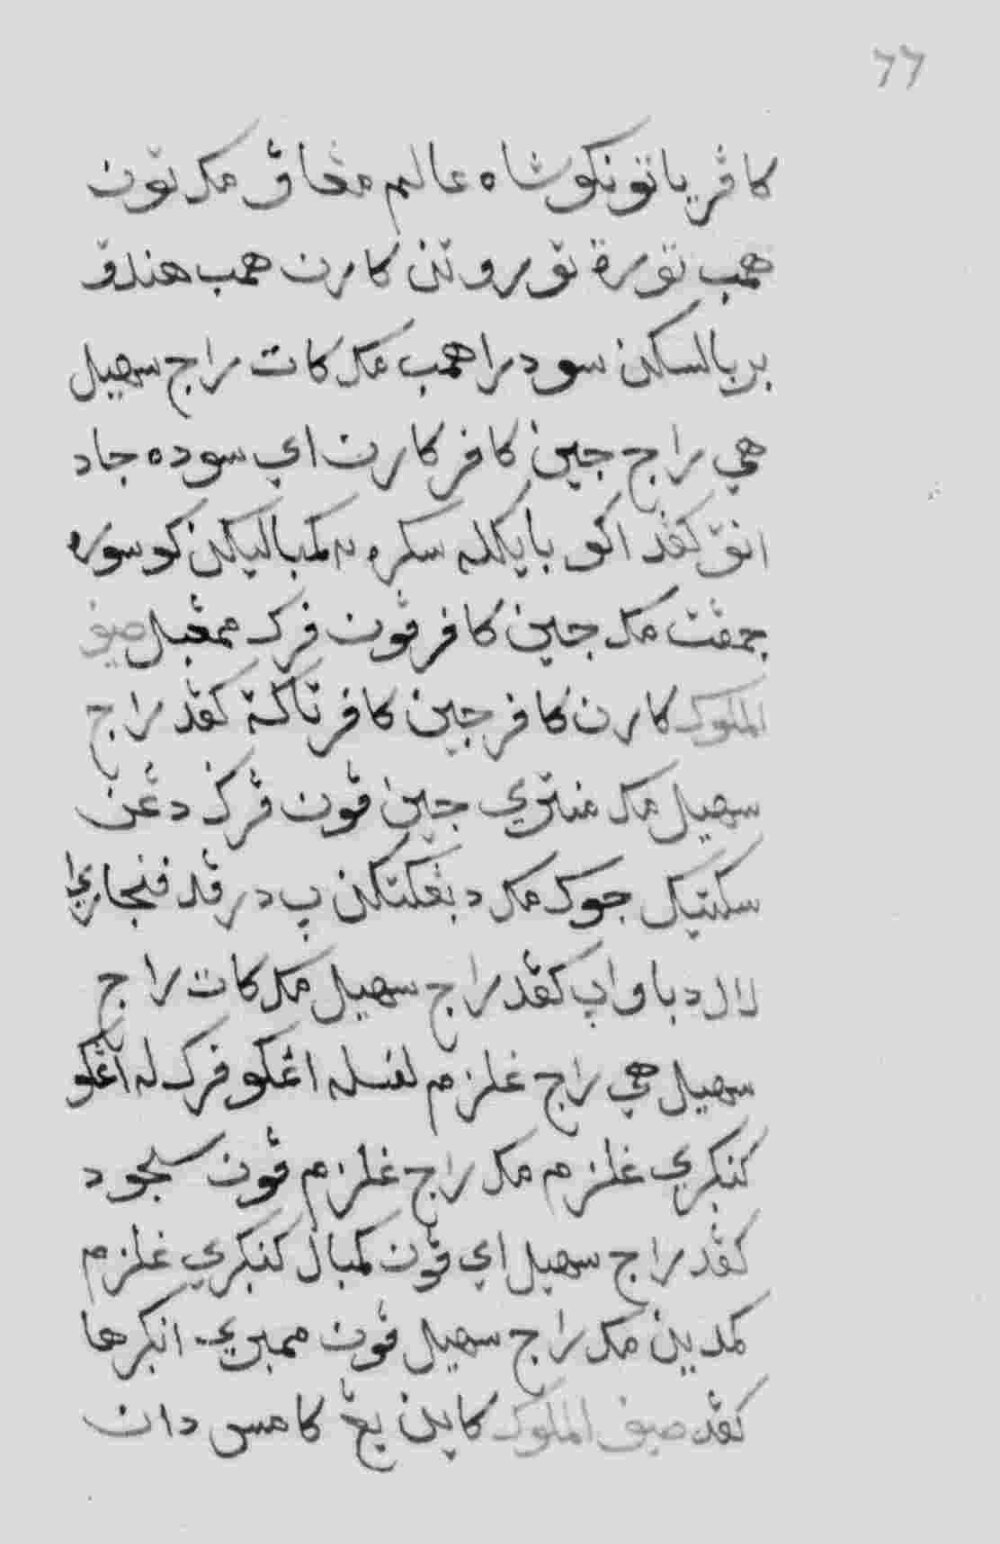 ٦٦
كافر ياتونكو شاه عالم مڠاڤ مك تون
همب توره تورون كارن همب هندق
بربالسكن سودرا همب مك كات راج سهيل
هي راج جين كافر كارن اي سوده جاد
انق كڤد اكو بايكله سكره كمباليكن كو سوره
جمڤت مك جين كافر ڤون ڤرڬ ممڠݢيل صيف
الملوك كارن كافر جين كافر تاكة كڤد راج
سهيل مك منتري جين ڤون ڤرڬ دڠن
سكتيك جوك مك دبڠكتكن ڤ در ڤد ڤنجاراي
لال دباواڽ كڤد راج سهيل مك كات راج
سهيل هي راج غلزم لڤسله اڠكو ڤرك له اڠكو
كنكري غلزم مك راج غلزم ڤون سجود
كڤد راج سهيل اي ڤون كمبال كنكري غلزم
كمدين مك راج سهيل ڤون ممبري انكرها
كڤد صيف الملوك كاين يڠ كامس دان